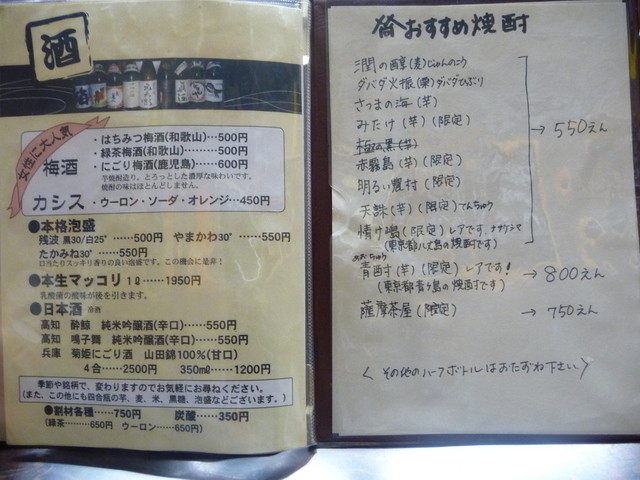 酒
女性に大人気
梅酒
・はちみつ梅酒(和歌山)……500円
・緑茶梅酒(和歌山)………500円
・にごり梅酒(鹿児島)……600円
芋焼酎造り。とろっとした濃厚な味わいです。
焼酎の味はほとんどしません。
カシス・ウーロン・ソーダ・オレンジ…450円
●本格泡盛
残波 黒30/白25°……500円 やまかわ30°……550円
たかみね30°……550円
口当たりスッキリ香りの良い泡盛です。この機会に是非!
●本生マッコリ 1ℓ……1950円
乳酸菌の酸味が後を引きます。
●日本酒 冷酒
高知 酔鯨 純米吟醸酒(辛口)……550円
高知 鳴子舞 純米吟醸酒(辛口)……550円
兵庫 菊姫にごり酒 山田錦100%(甘口)
4合…2500円 350mℓ…1200円
季節や銘柄で、変わりますのでお気軽にお尋ねください。
(また、この他にも四合瓶の芋、麦、米、黒糖、泡盛などございます。)
●割材各種……750円 炭酸……350円
(緑茶………650円 ウーロン……650円)
おすすめ焼酎
潤の醇(麦)じゅんのこう
ダバダ火振(栗)ダバダひぶり
さつまの海(芋)
みたけ(芋)(限定)
→550えん
赤霧島(芋)(限定)
明るい農村(限定)
天誅(芋)(限定)てんちゅう
情け嶋(限定)レアです ナサケシマ
(東京都八丈島の焼酎です)
青酎(芋)(限定)レアです! →800えん
(東京都青ヶ島の焼酎です)
薩摩茶屋(限定) →750えん
<その他のハーフボトルはおたずね下さい。>